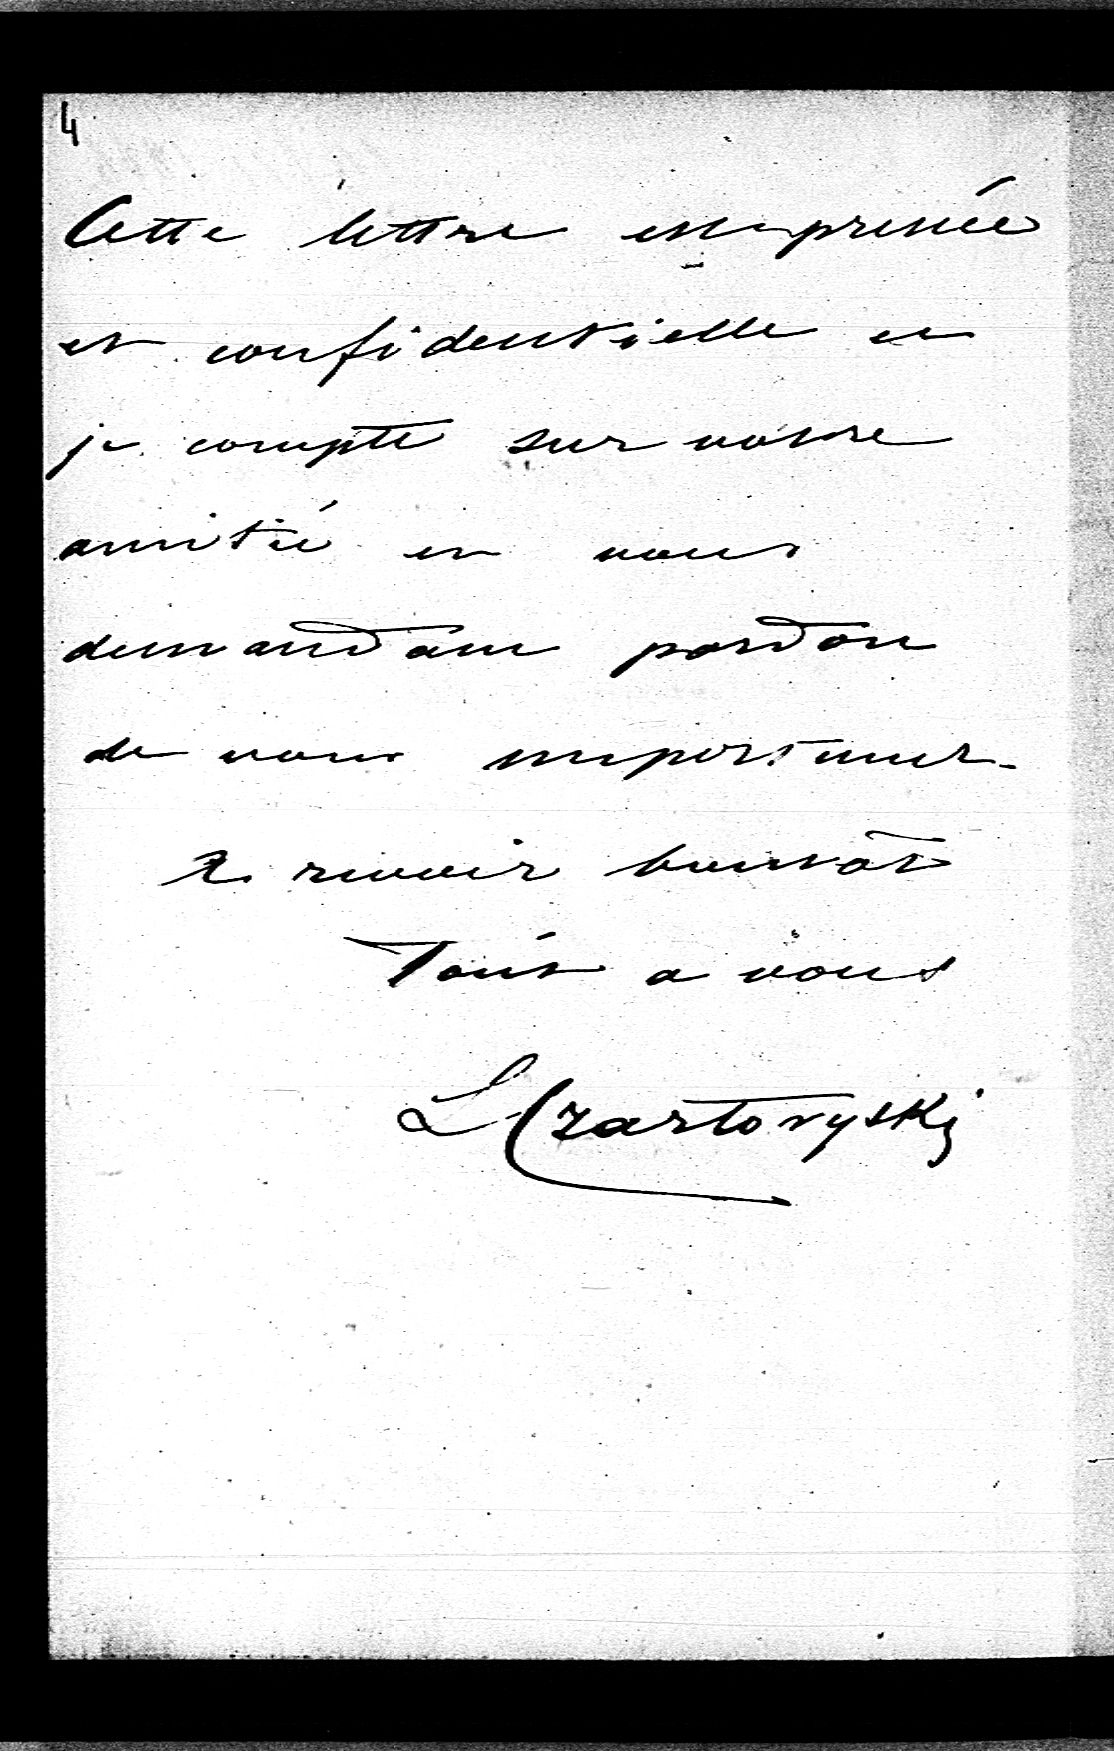 4
Cette lettre est pressée
et confidentielle et
je compte sur votre
amitié en vous
demandant pardon
de vous importuner.
A revoir bientôt
Tout a vous
L Czartoryski